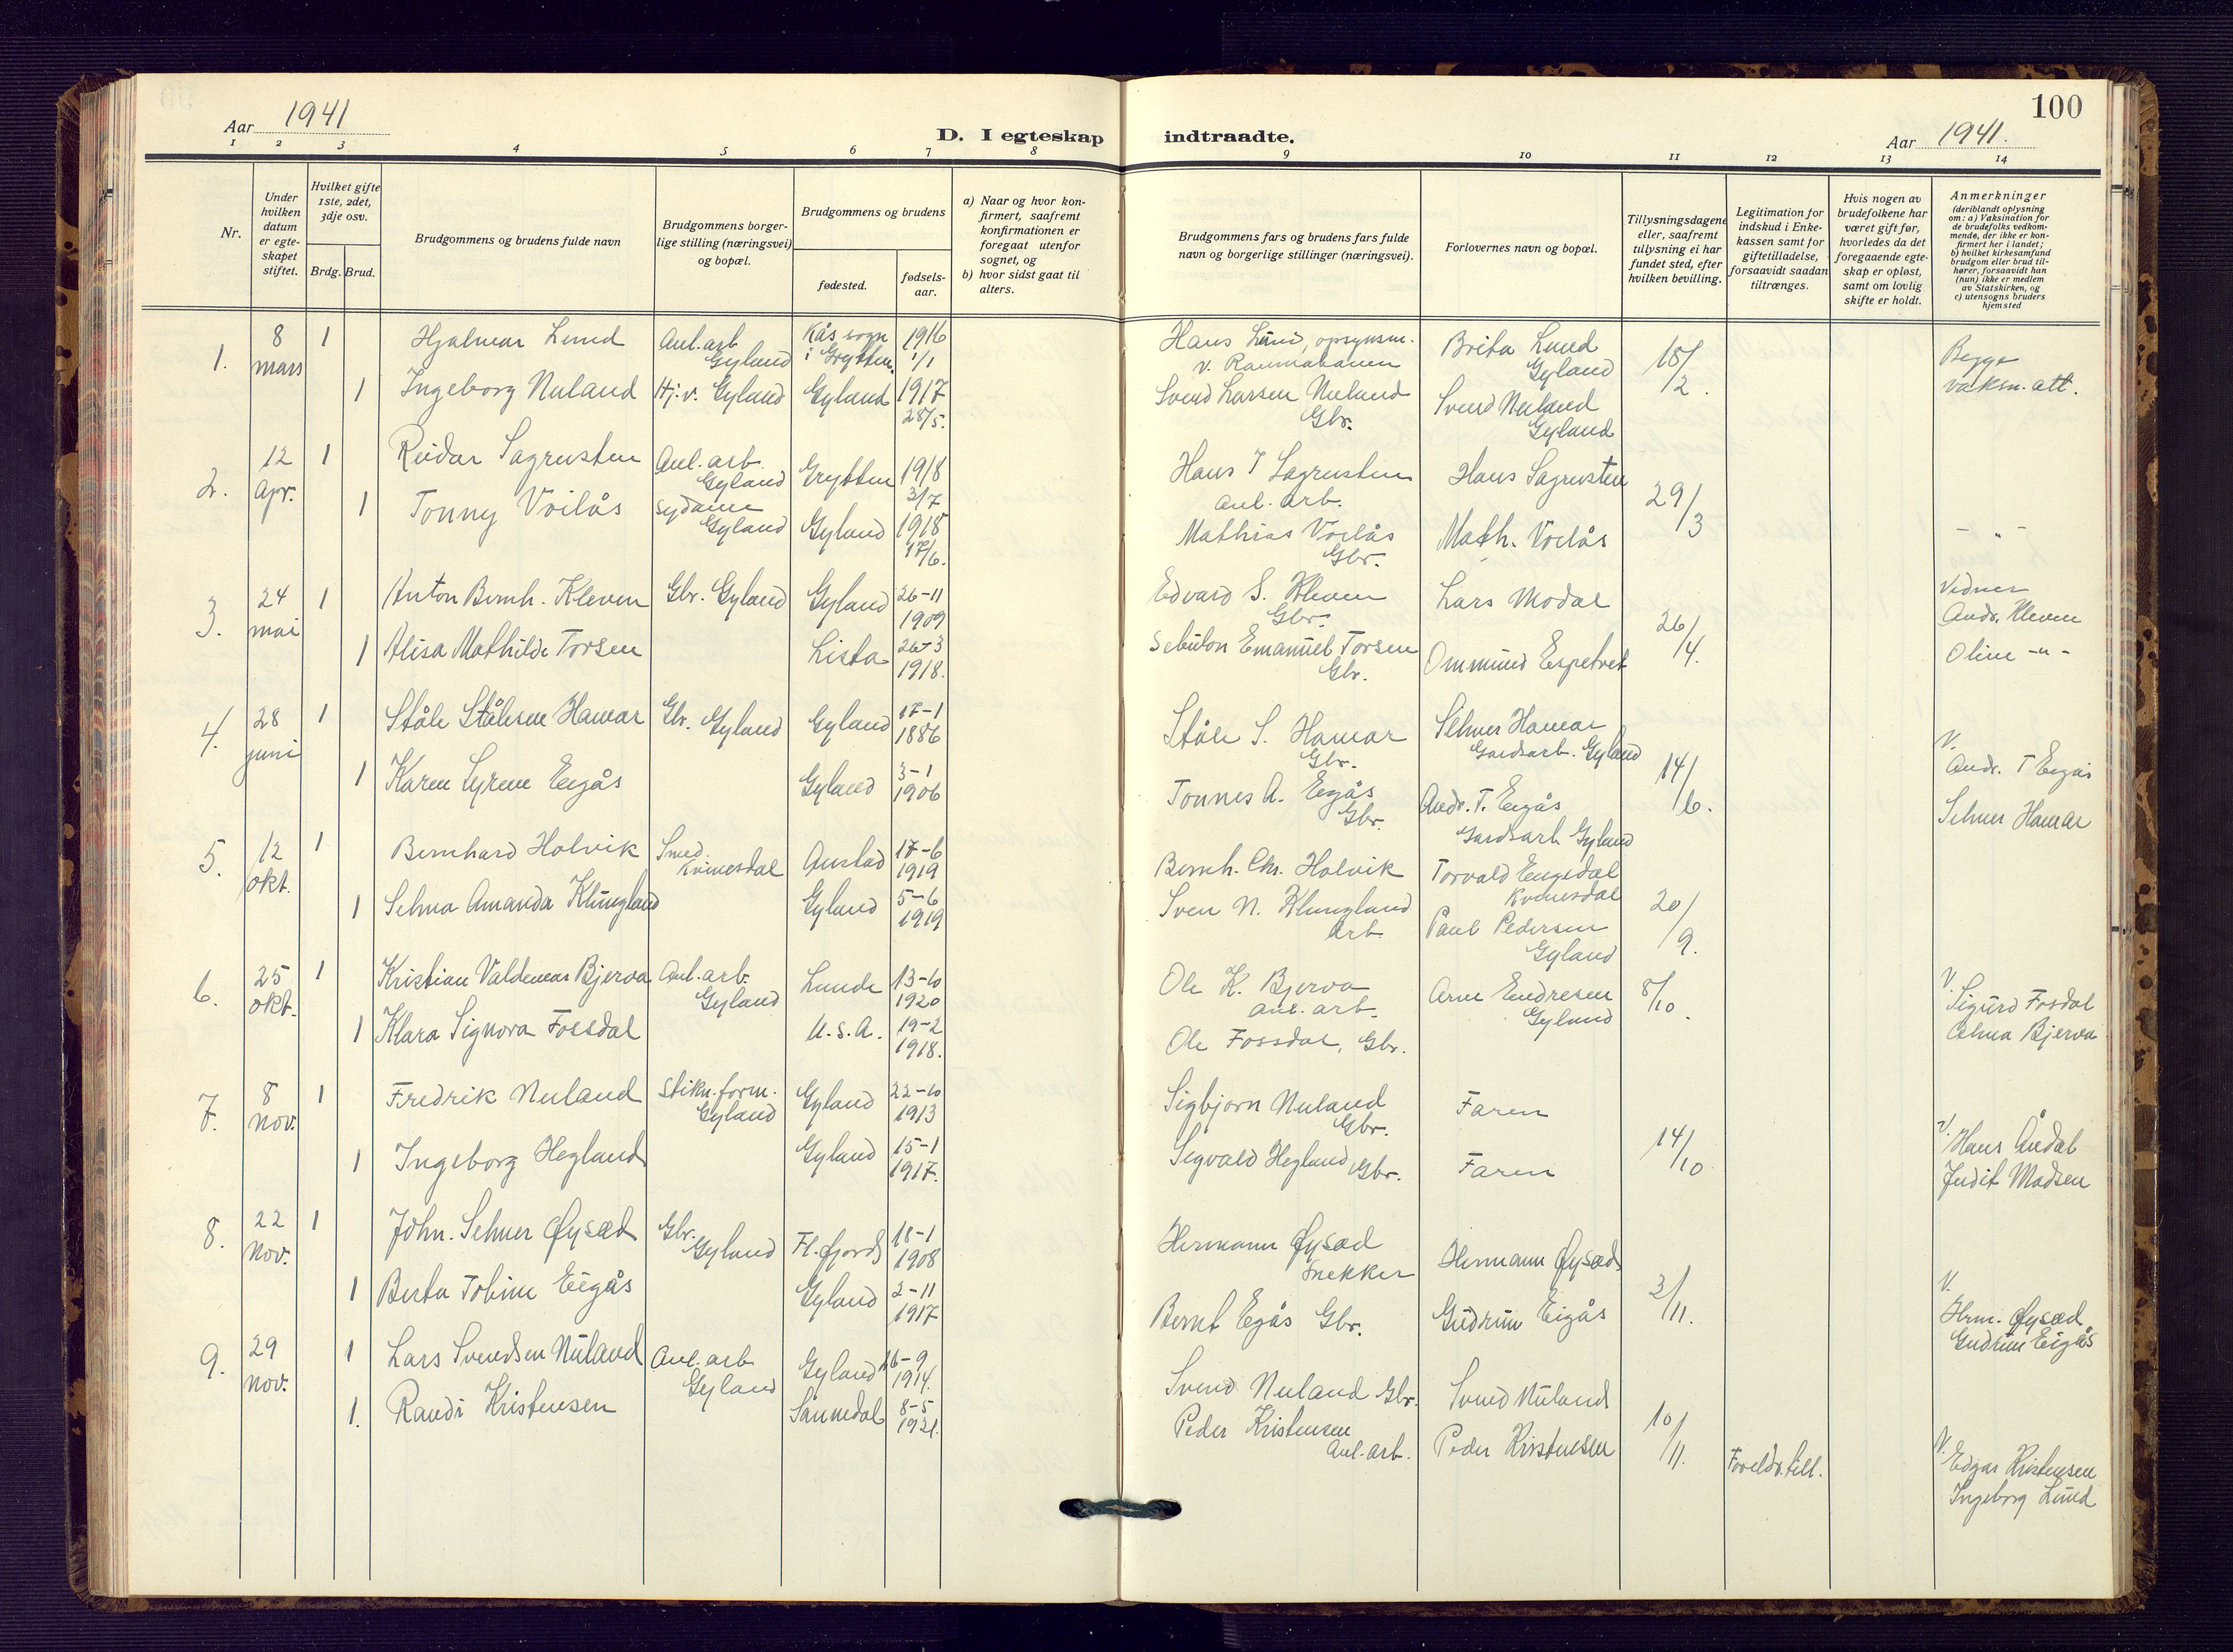 100
Aar 1941
D. I egteskap indtraadte.
Aar 1941.
1 2 3 4 5 6 7 8 9 10 11 12 13 14
Nr.
Under hvilken datum er egteskapet stiftet.
Hvilket gifte 1ste, 2det, 3dje osv.
Brdg. Brud.
Brudgommens og brudens fulde navn
Brudgommens borgerlige stilling (næringsvei) og bopæl.
Brudgommens og brudens
fødested.
fødselsaar.
a) Naar og hvor konfirmert, saafremt konfirmationen er foregaat utenfor sognet, og
b) hvor sidst gaat til alters.
Brudgommens fars og brudens fars fulde navn og borgerlige stillinger (næringsvei).
Forlovernes navn og bopæl.
Tillysningsdagene eller, saafremt tillysning ei har fundet sted, efter hvilken bevilling.
Legitimation for indskud i Enkekassen samt for giftetilladelse, forsaavidt saadan tiltrænges.
Hvis nogen av brudefolkene har været gift før, hvorledes da det foregaaende egteskap er opløst, samt om lovlig skifte er holdt.
Anmerkninger
(deriblandt oplysning om: a) Vaksination for de brudefolks vedkommende, der ikke er konfirmert her i landet; b) hvilket kirkesamfund brudgom eller brud tilhører, forsaavidt han (hun) ikke er medlem av Statskirken, og c) utensogns bruders hjemsted
1. 8 mars 1 Hjalmar Lund Anl. arb Gyland Kås sogn i Grytten. 1916 1/1 Hans Lund, opsynsm. v. Raumabanen Brita Lund Gyland 15/2. Begge vaksn. att.
1 Ingeborg Nuland Hj. v. Gyland Gyland 1917 28/5. Svend Larsen Nuland Gbr. Svend Nuland Gyland
2. 12 Apr. 1 Reidar Sagrusten Anl. arb. Gyland Grytten 1918 3/7 Hans T Sagrusten anl. arb. Hans Sagrusten 29/3 - " -
1 Tonny Voilås sydame Gyland Gyland 1918 17/6. Mathias Voilås Gbr. Math. Voilås
3. 24 mai 1 Anton Bernh. Kleven Gbr. Gyland Gyland 26-11 1909 Edvard S. Kleven Gbr. Lars Modal 26/4. Vidner Andr. Kleven
1 Alisa Mathilde Torsen Lista 26-3 1918. Sebulon Emanuel Torsen Gbr. Ommund Espetvet Oline -"-
4. 28 juni 1 Ståle Stålesen Hamar Gbr. Gyland Gyland 17-1 1886 Ståle S. Hamar Gbr. Selmer Hamar Gardsarb. Gyland 14/6. V. Andr. T Eigås
1 Karen Syrene Eigås Gyland 3-1 1906 Tønnes A. Eigås Gbr. Andr. T. Eigås Gardsarb. Gyland Selmer Hamar
5. 12 okt. 1 Bernhard Holvik Smed. Kvinesdal Austad 17-6 1919 Bernh. Chr. Holvik Torvald Engedal Kvinesdal 20/9.
1 Selma Amanda Klungland Gyland 5-6 1919 Sven N. Klungland Arb. Paul Pedersen Gyland
6. 25 okt. 1 Kristian Valdemar Bjerva Anl. arb. Gyland Lunde 13-10 1920 Ole K. Bjerva anl. arb. Arne Endresen Gyland 8/10. V. Sigurd Fosdal
1 Klara Signora Fossdal U.S.A. 19-2 1918. Ole Fossdal, Gbr. Bjerva
7. 8 nov. 1 Fredrik Nuland Stikn. form. Gyland Gyland 22-10 1913 Sigbjørn Nuland Gbr. Faren 14/10 V. Hans Åmdal
1 Ingeborg Hegland Gyland 15-1 1917. Sigvald Hegland Gbr. Faren Judit Madsen
8. 22 nov. 1 John. Selmer Øysæd Gbr. Gyland Fl.fjord 18-1 1908 Hermann Øysæd Snekker Hermann Øysæd 2/11. V. Hrm. Øysæd
1 Berta Tobine Eigås Gyland 2-11 1917 Bernt Egås Gbr. Gudrun Eigås Gudrun Eigås
9. 29 nov. 1 Lars Svendsen Nuland Anl. arb Gyland Gyland 26-9 1914. Svend Nuland Gbr. Svend Nuland 10/11. Foreldr. till. V. Edgar Kristensen
1. Randi Kristensen Sannidal 8-5 1921. Peder Kristensen Anl. arb. Peder Kristensen Ingeborg Lund